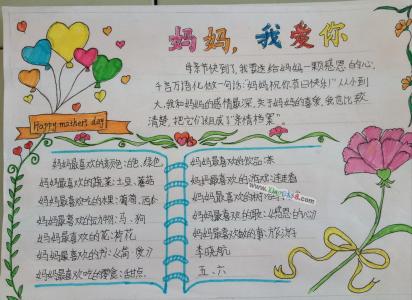 妈妈，我爱你
母亲节快到了，我要送给妈妈一颗感恩的心，
千言万语化做一句话："妈妈祝你节日快乐！"从小到
大，我和妈妈的感情最深，关于妈妈的喜爱，我也比较
清楚，把它们组成了"亲情档案"。
Happy mother's day
妈妈最喜欢的颜色：白色、绿色
妈妈最喜欢的蔬菜：土豆、蘑菇
妈妈最喜欢吃的水果：葡萄、西瓜
妈妈最喜欢的动物：马、狗
妈妈最喜欢的花：荷花
妈妈最喜欢的书：《简·爱》
妈妈最喜欢吃的零食：甜点
妈妈最喜欢的饮品：茶
妈妈最喜欢的游戏：连连看
妈妈最喜欢的
妈妈最喜欢的歌：《感恩的心》
妈妈最喜欢做的事：旅游
李晓航
五、六